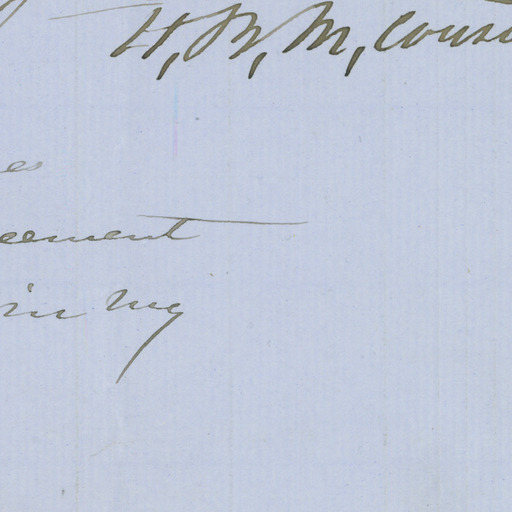 H, B, M, Cons
es
eement
in my